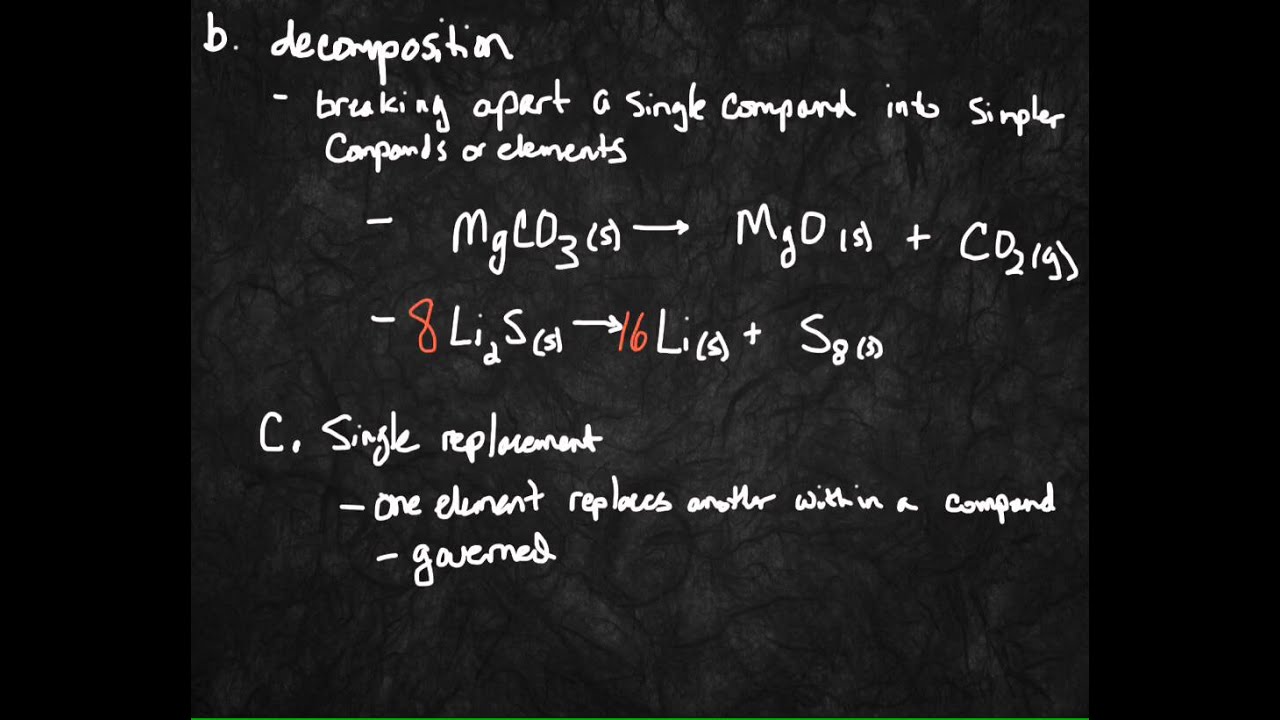 b. decomposition
- breaking apart a single compound into simpler
compounds or elements
- MgCO₃(s) → MgO(s) + CO₂(g)
- 8 Li₂S(s) → 16 Li(s) + S₈(s)
C. Single replacement
- one element replaces another within a compound
- governed